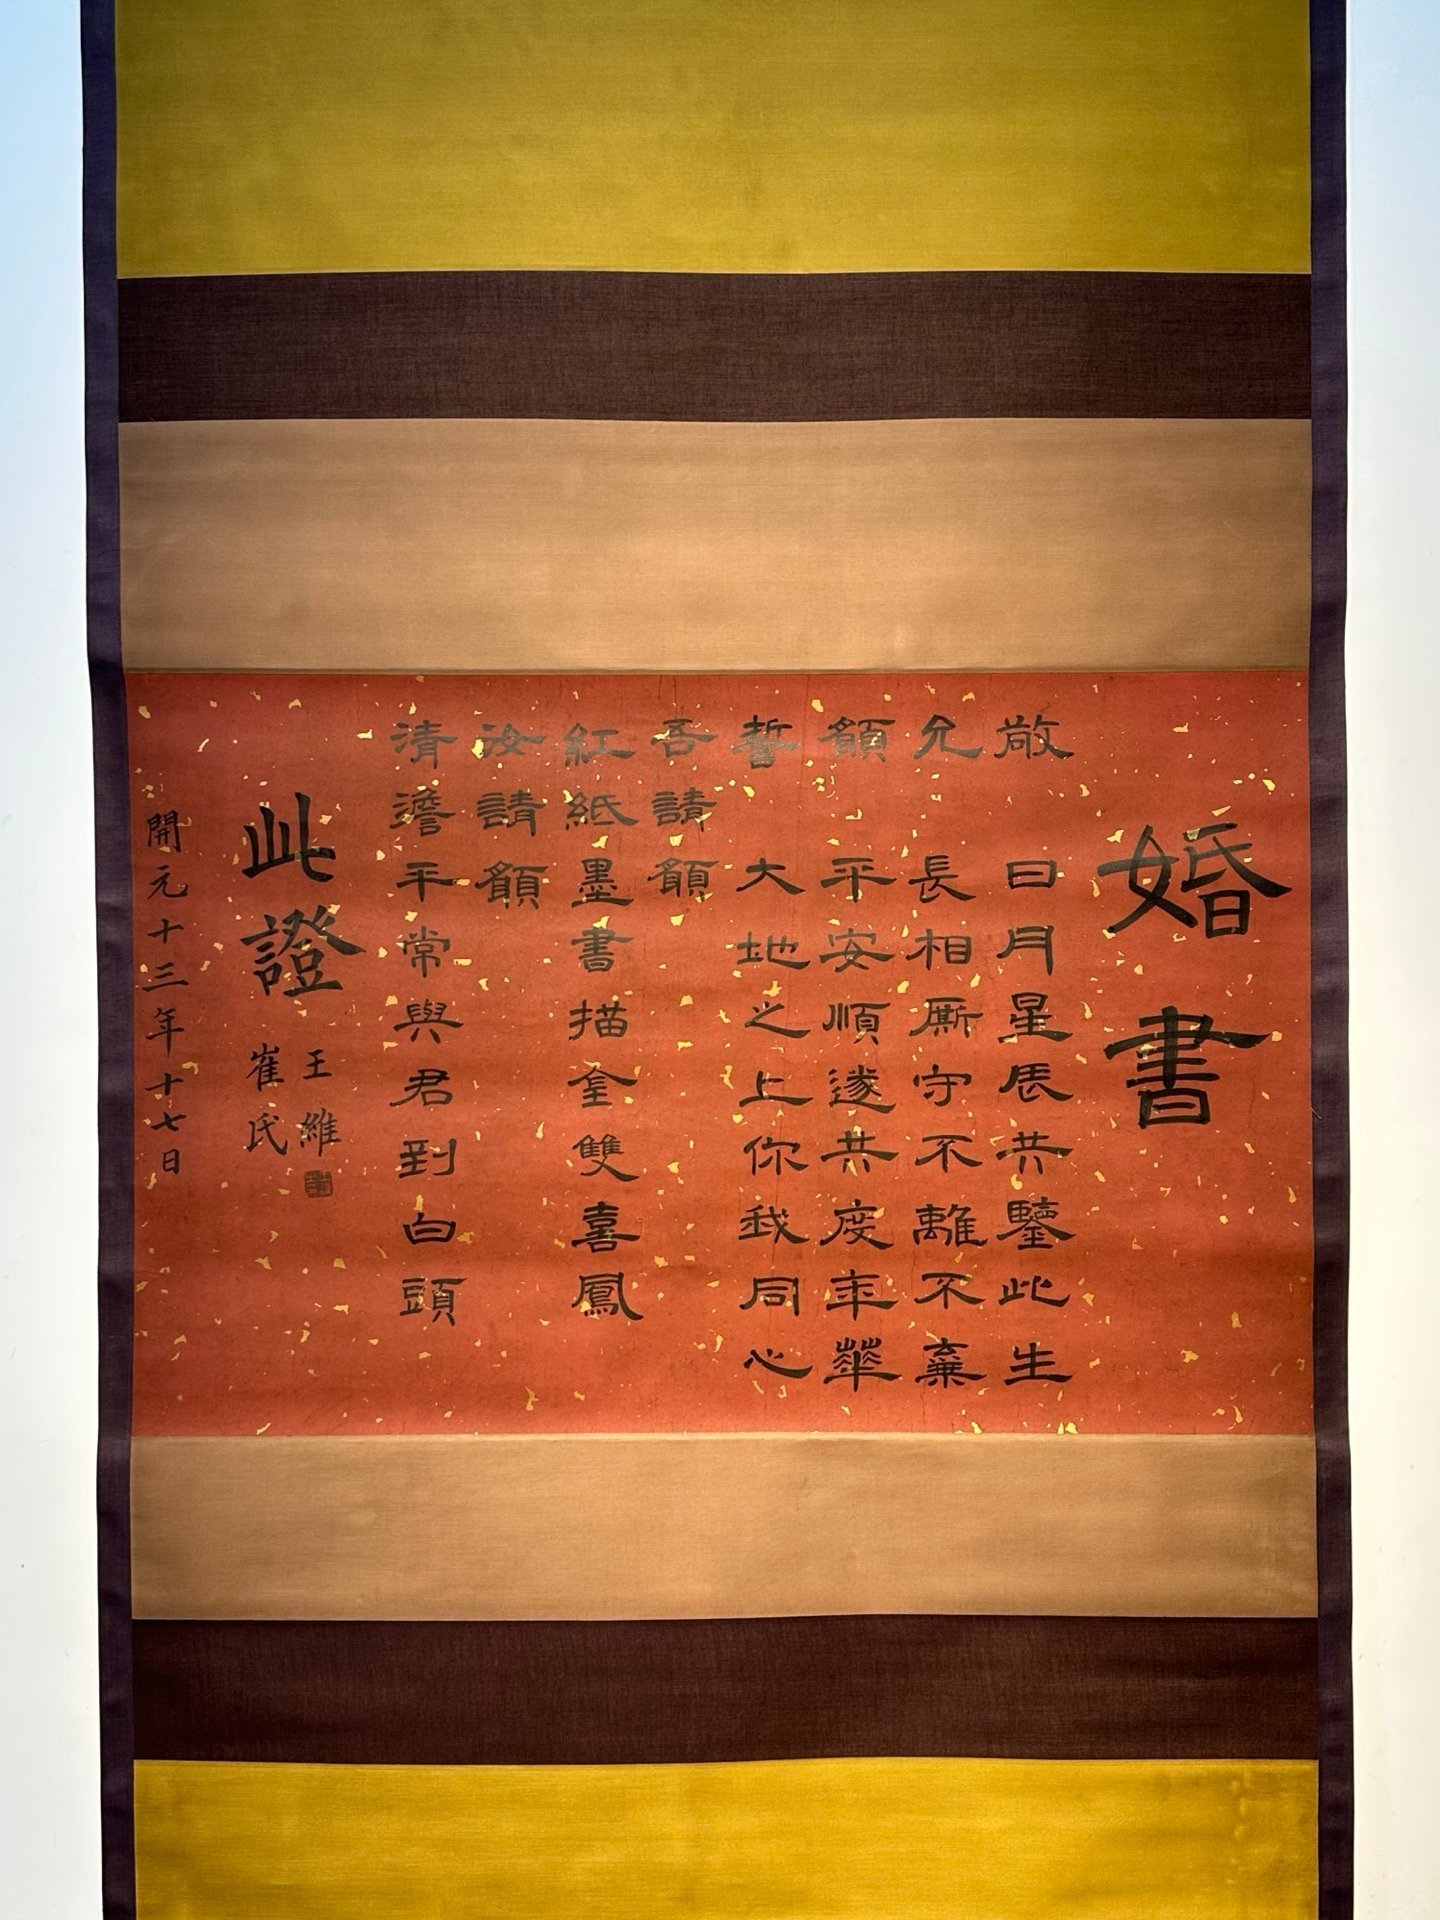 婚書
敬 日月星辰共鑒此生
允 長相厮守不離不棄
願 平安順遂共度年華
誓 大地之上你我同心
吾請願
紅紙墨書描金雙喜鳳
汝請願
清澹平常與君到白頭
此證
王維
崔氏
開元十三年十七日